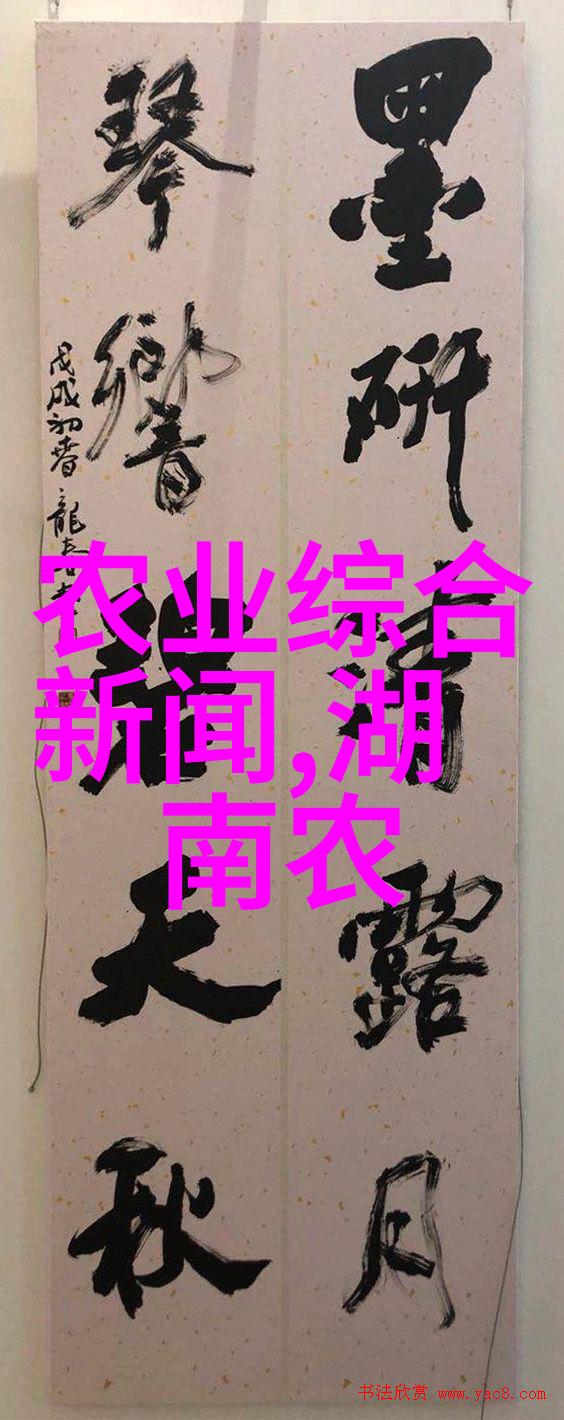 墨研清露月
琴響碧天秋
戊戌初春
龍
农业综合
新闻,湖
南农
书法欣赏 www.yac8.com